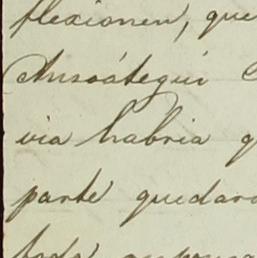 flexionen, que
Ansoátegui
via habria q
parte quedara
todo